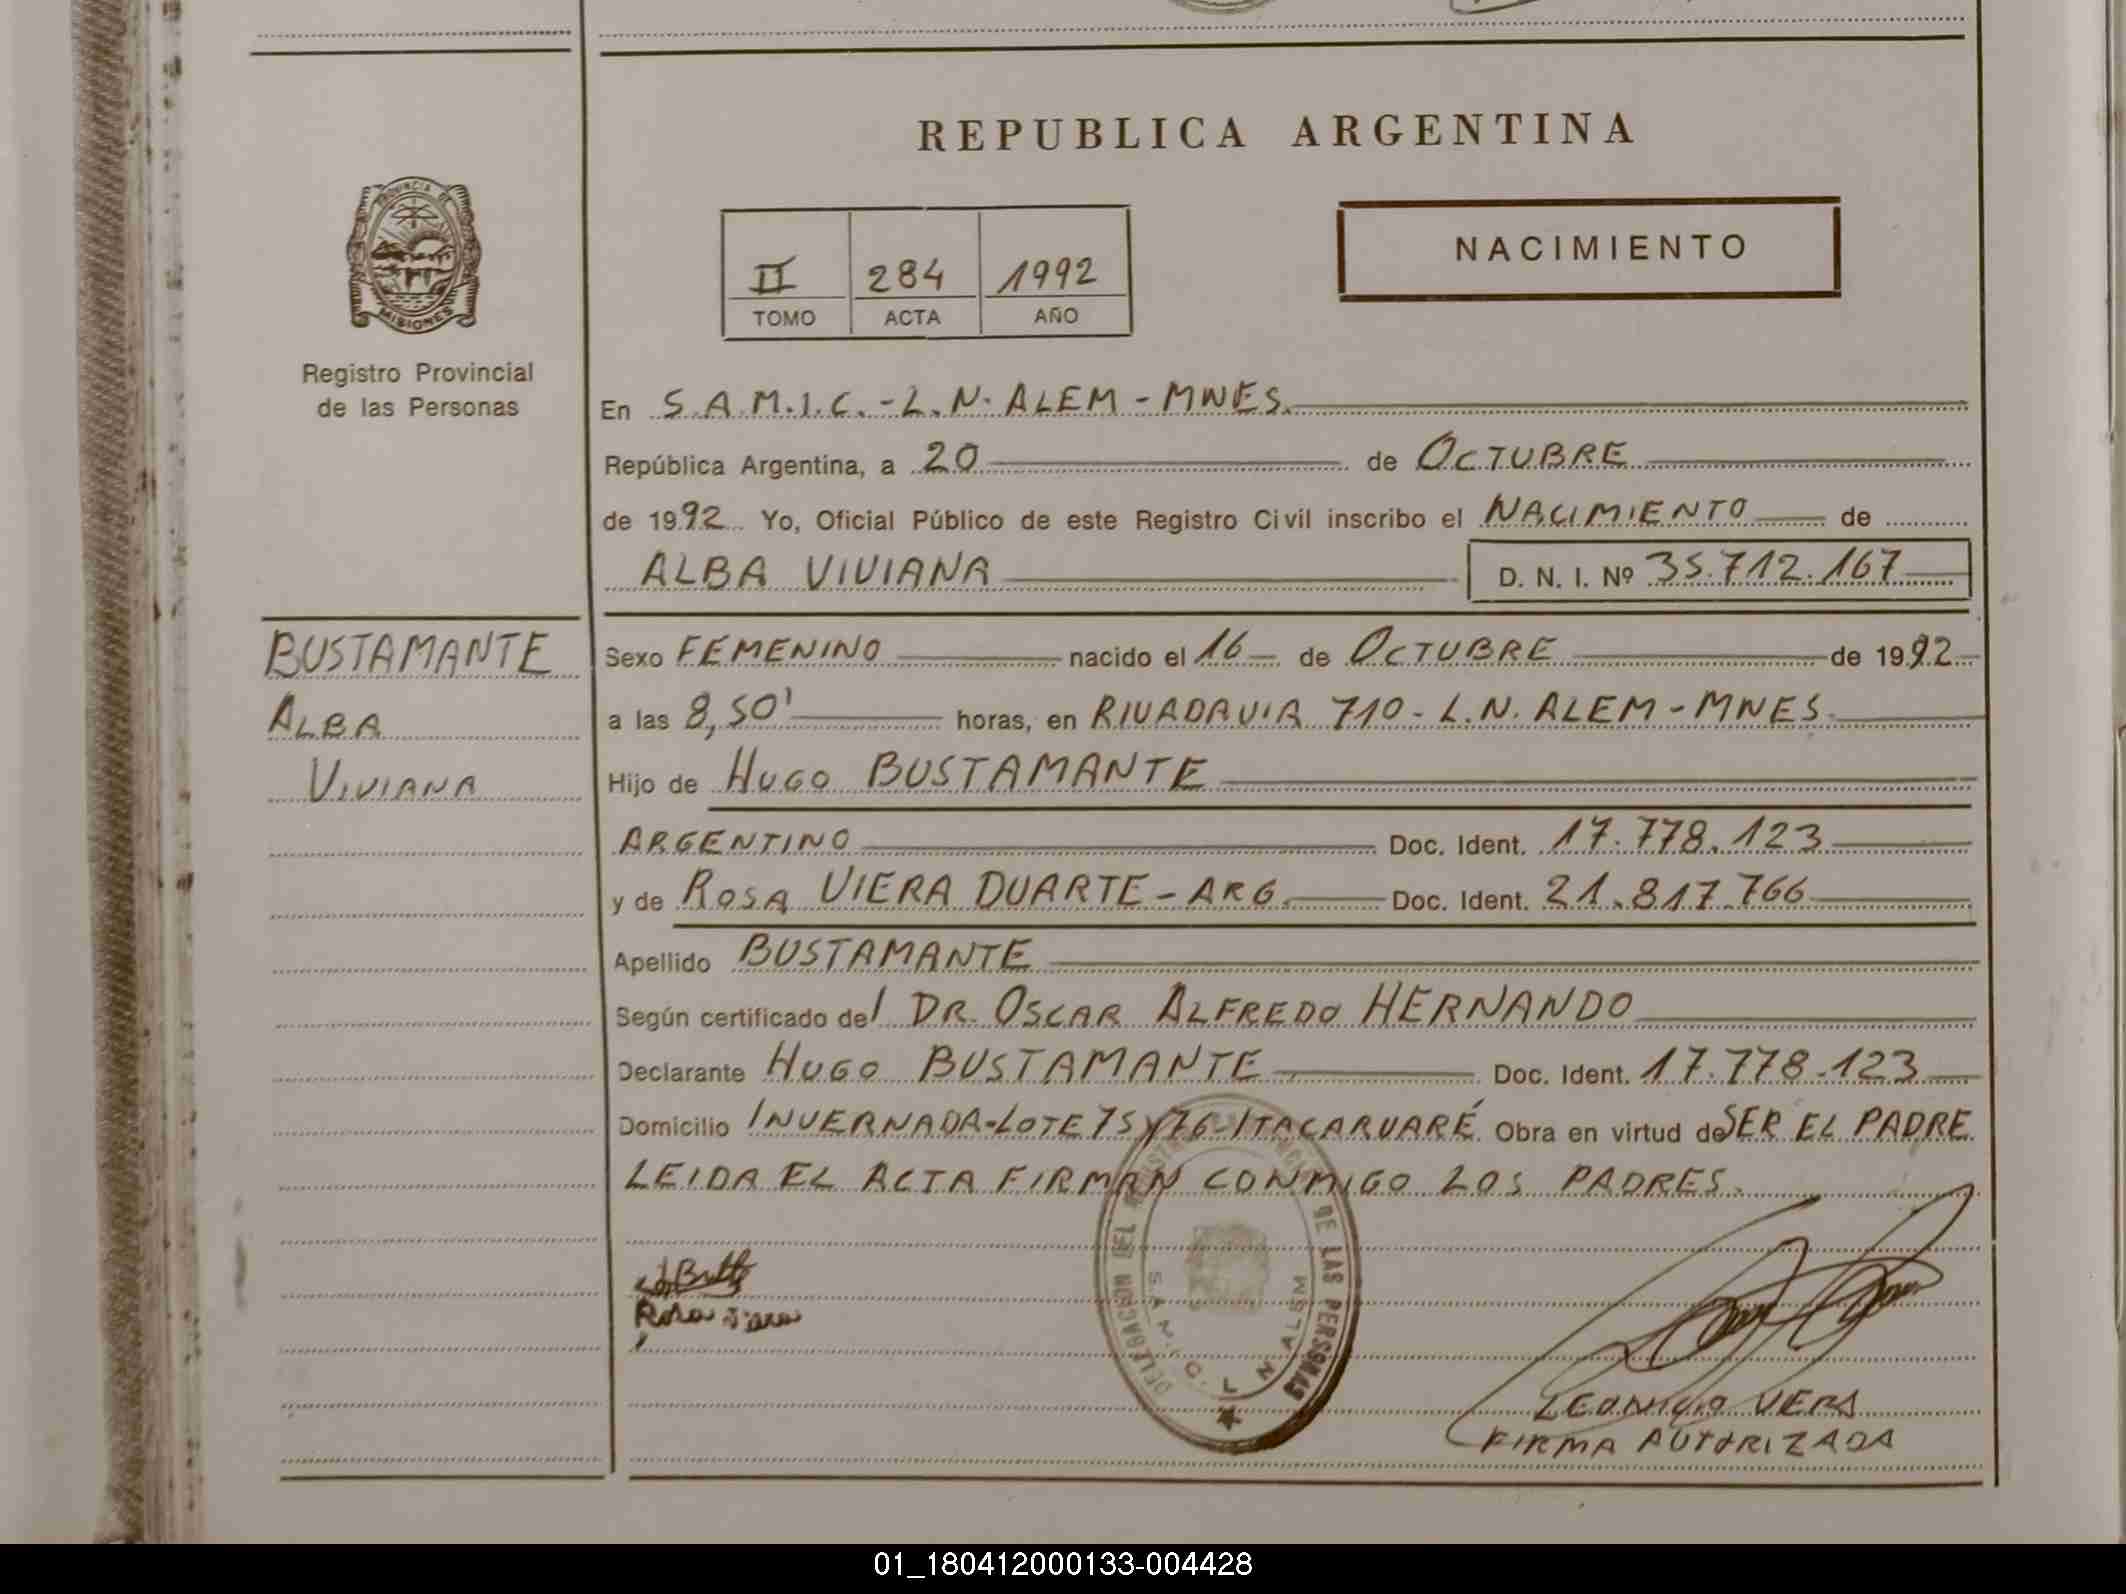 REPUBLICA ARGENTINA
PROVINCIA DE
MISIONES
Registro Provincial
de las Personas
II 284 1992
TOMO ACTA AÑO
NACIMIENTO
En S.A.M.I.C.-L.N. ALEM - MNES.
República Argentina, a 20 de OCTUBRE
de 1992 Yo, Oficial Público de este Registro Civil inscribo el NACIMIENTO de
ALBA VIVIANA D. N. I. Nº 35.712.167
BUSTAMANTE
ALBA
VIVIANA
Sexo FEMENINO nacido el 16 de OCTUBRE de 1992
a las 8,50' horas, en RIVADAVIA 710 - L.N. ALEM - MNES.
Hijo de HUGO BUSTAMANTE
ARGENTINO Doc. Ident. 17.778.123
y de ROSA VIERA DUARTE - ARG. Doc. Ident. 21.817.766
Apellido BUSTAMANTE
Según certificado del DR. OSCAR ALFREDO HERNANDO
Declarante HUGO BUSTAMANTE Doc. Ident. 17.778.123
Domicilio INVERNADA-LOTE 75 y 76-ITACARUARÉ Obra en virtud de SER EL PADRE.
LEIDA EL ACTA FIRMAN CONMIGO LOS PADRES.
DELEGACION DEL REGISTRO PROVINCIAL DE LAS PERSONAS
S.A.M.I.C. L N ALEM
Rosa Viera
LEONICIO VERA
FIRMA AUTORIZADA
01_180412000133-004428